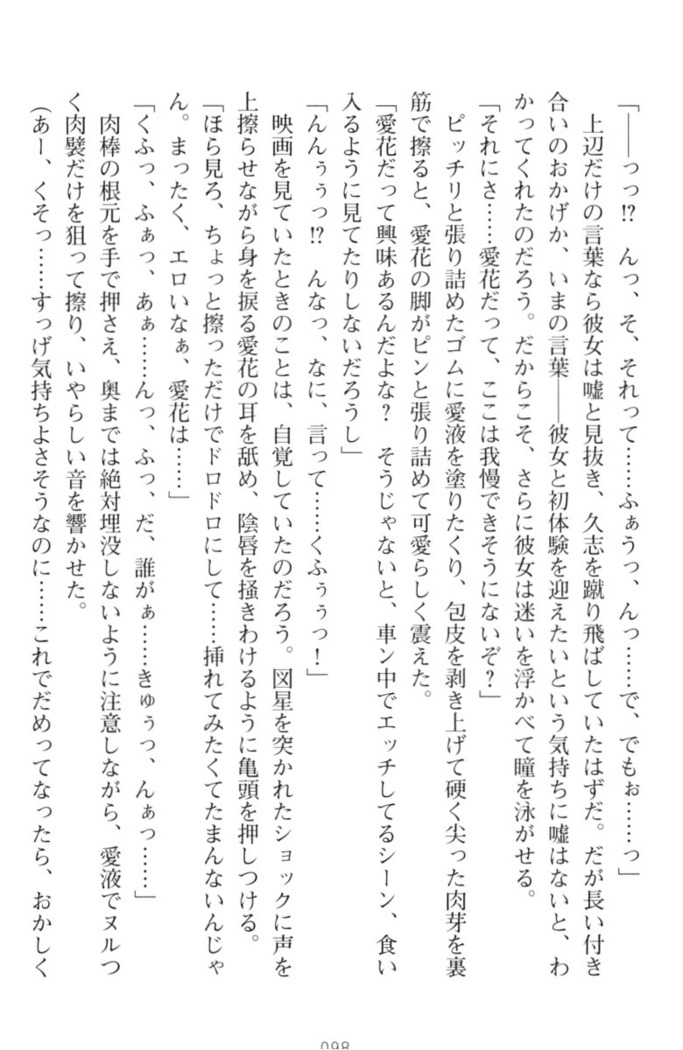 「――っっ!?　んっ、そ、それって……ふぁうっ、んっ……で、でもぉ……っ」
　上辺だけの言葉なら彼女は嘘と見抜き、久志を蹴り飛ばしていたはずだ。だが長い付き
合いのおかげか、いまの言葉――彼女と初体験を迎えたいという気持ちに嘘はないと、わ
かってくれたのだろう。だからこそ、さらに彼女は迷いを浮かべて瞳を泳がせる。
「それにさ……愛花だって、ここは我慢できそうにないぞ？」
　ピッチリと張り詰めたゴムに愛液を塗りたくり、包皮を剥き上げて硬く尖った肉芽を裏
筋で擦ると、愛花の脚がピンと張り詰めて可愛らしく震えた。
「愛花だって興味あるんだよな？　そうじゃないと、車ン中でエッチしてるシーン、食い
入るように見てたりしないだろうし」
「んんぅぅっ!?　んなっ、なに、言って……くふぅぅっ！」
　映画を見ていたときのことは、自覚していたのだろう。図星を突かれたショックに声を
上擦らせながら身を捩る愛花の耳を舐め、陰唇を掻きわけるように亀頭を押しつける。
「ほら見ろ、ちょっと擦っただけでドロドロにして……挿れてみたくてたまんないんじゃ
ん。まったく、エロいなぁ、愛花は……」
「くふっ、ふぁっ、あぁ……んっ、ふっ、だ、誰がぁ……きゅぅっ、んぁっ……」
　肉棒の根元を手で押さえ、奥までは絶対埋没しないように注意しながら、愛液でヌルつ
く肉襞だけを狙って擦り、いやらしい音を響かせた。
（あー、くそっ……すっげ気持ちよさそうなのに……これでだめってなったら、おかしく
098